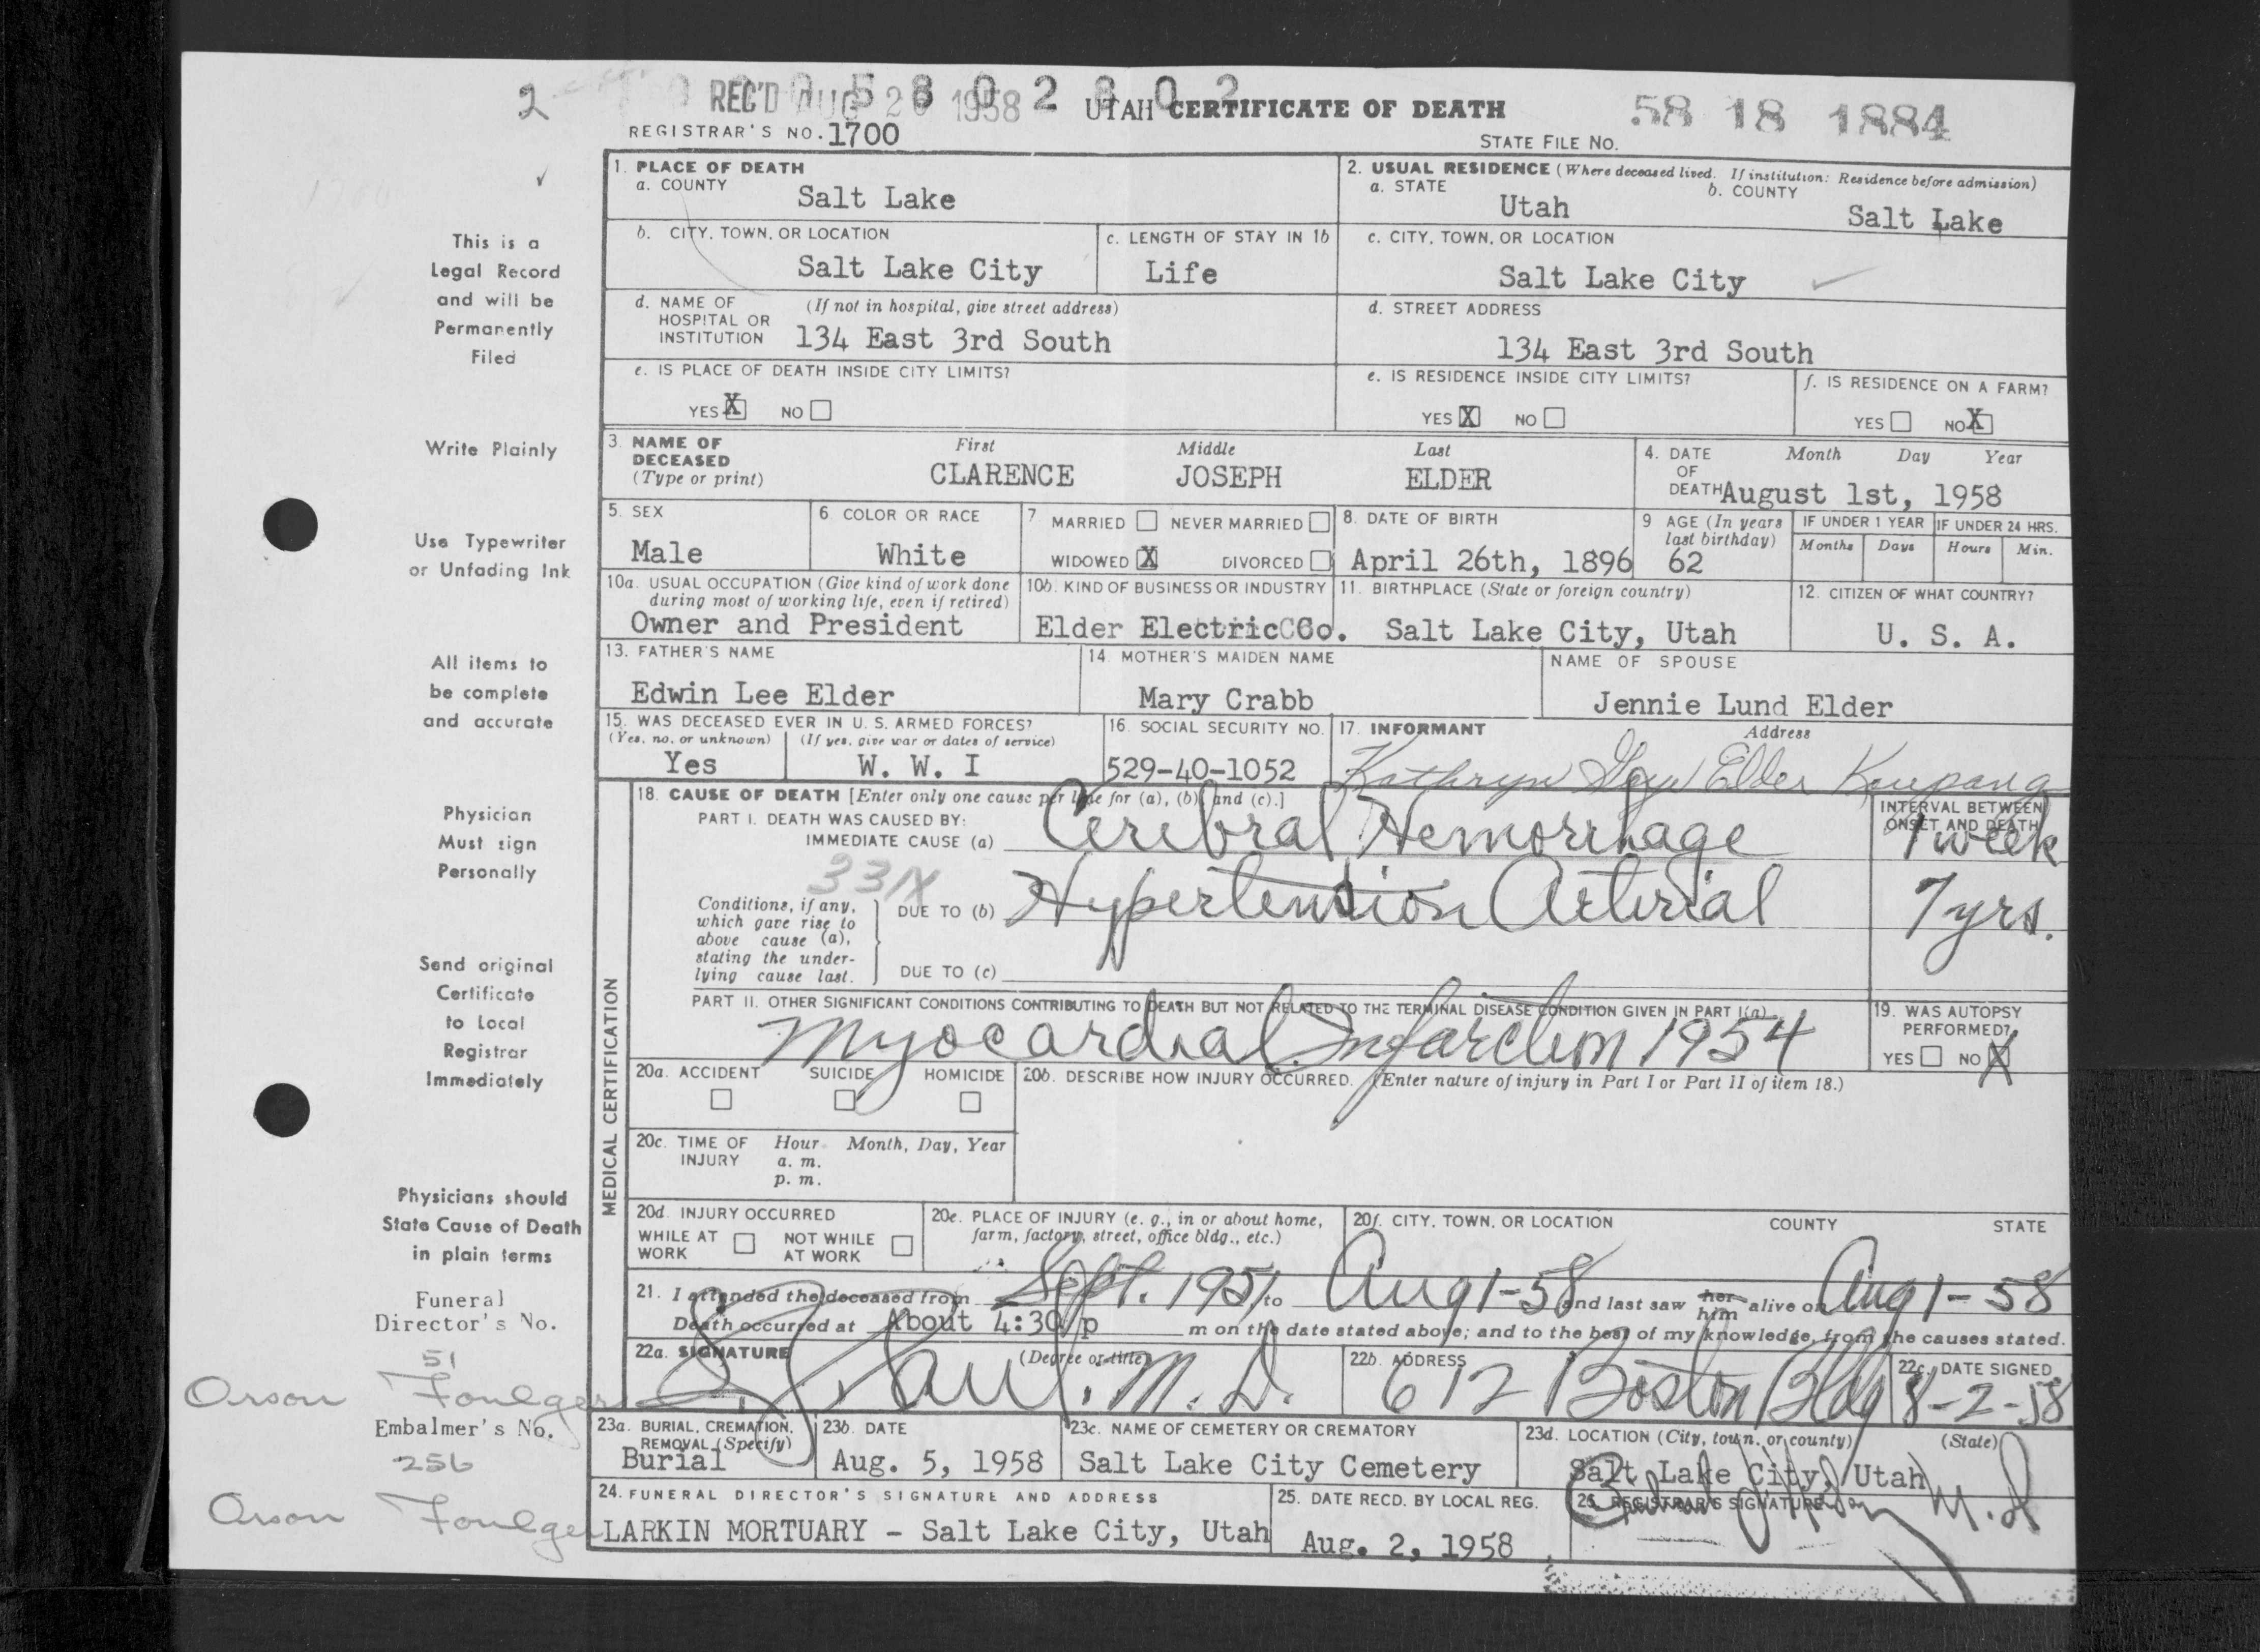 2 REC'D AUG 26 1958 UTAH CERTIFICATE OF DEATH 58 18 1884
REGISTRAR'S NO. 1700 STATE FILE No.
1. PLACE OF DEATH
a. COUNTY Salt Lake
2. USUAL RESIDENCE (Where deceased lived. If institution: Residence before admission)
a. STATE Utah b. COUNTY Salt Lake
b. CITY, TOWN, OR LOCATION Salt Lake City
c. LENGTH OF STAY IN 1b Life
c. CITY, TOWN, OR LOCATION Salt Lake City
d. NAME OF HOSPITAL OR INSTITUTION (If not in hospital, give street address) 134 East 3rd South
d. STREET ADDRESS 134 East 3rd South
e. IS PLACE OF DEATH INSIDE CITY LIMITS?
YES X NO
e. IS RESIDENCE INSIDE CITY LIMITS?
YES X NO
f. IS RESIDENCE ON A FARM?
YES NO X
3. NAME OF DECEASED (Type or print)
First Middle Last
CLARENCE JOSEPH ELDER
4. DATE OF DEATH Month Day Year
August 1st, 1958
5. SEX Male
6. COLOR OR RACE White
7 MARRIED NEVER MARRIED
WIDOWED X DIVORCED
8. DATE OF BIRTH April 26th, 1896
9 AGE (In years last birthday) 62
IF UNDER 1 YEAR IF UNDER 24 HRS.
Months Days Hours Min.
10a. USUAL OCCUPATION (Give kind of work done during most of working life, even if retired)
Owner and President
10b. KIND OF BUSINESS OR INDUSTRY
Elder Electric Co.
11. BIRTHPLACE (State or foreign country)
Salt Lake City, Utah
12. CITIZEN OF WHAT COUNTRY?
U. S. A.
13. FATHER'S NAME
Edwin Lee Elder
14. MOTHER'S MAIDEN NAME
Mary Crabb
NAME OF SPOUSE
Jennie Lund Elder
15. WAS DECEASED EVER IN U. S. ARMED FORCES?
(Yes, no, or unknown) (If yes, give war or dates of service)
Yes W. W. I
16. SOCIAL SECURITY NO.
529-40-1052
17. INFORMANT Address
Kathryn Elder
MEDICAL CERTIFICATION
18. CAUSE OF DEATH [Enter only one cause per line for (a), (b), and (c).]
PART I. DEATH WAS CAUSED BY:
IMMEDIATE CAUSE (a) Cerebral Hemorrhage
INTERVAL BETWEEN ONSET AND DEATH
1 week
331X
Conditions, if any, which gave rise to above cause (a), stating the underlying cause last.
DUE TO (b) Hypertension Arterial 7 yrs.
DUE TO (c)
PART II. OTHER SIGNIFICANT CONDITIONS CONTRIBUTING TO DEATH BUT NOT RELATED TO THE TERMINAL DISEASE CONDITION GIVEN IN PART I(a)
Myocardial Infarction 1954
19. WAS AUTOPSY PERFORMED?
YES NO X
20a. ACCIDENT SUICIDE HOMICIDE
20b. DESCRIBE HOW INJURY OCCURRED. (Enter nature of injury in Part I or Part II of item 18.)
20c. TIME OF INJURY Hour Month, Day, Year
a. m.
p. m.
20d. INJURY OCCURRED
WHILE AT WORK NOT WHILE AT WORK
20e. PLACE OF INJURY (e. g., in or about home, farm, factory, street, office bldg., etc.)
20f. CITY, TOWN, OR LOCATION COUNTY STATE
21. I attended the deceased from Sept. 1951 to Aug 1-58 and last saw her him alive on Aug 1-58
Death occurred at About 4:30 p m on the date stated above; and to the best of my knowledge, from the causes stated.
22a. SIGNATURE (Degree or title)
M. D.
22b. ADDRESS
612 Boston Bldg
22c. DATE SIGNED
8-2-58
23a. BURIAL, CREMATION, REMOVAL (Specify)
Burial
23b. DATE
Aug. 5, 1958
23c. NAME OF CEMETERY OR CREMATORY
Salt Lake City Cemetery
23d. LOCATION (City, town, or county) (State)
Salt Lake City, Utah
24. FUNERAL DIRECTOR'S SIGNATURE AND ADDRESS
LARKIN MORTUARY - Salt Lake City, Utah
25. DATE RECD. BY LOCAL REG.
Aug. 2, 1958
26. REGISTRAR'S SIGNATURE
M.D
This is a
Legal Record
and will be
Permanently
Filed
Write Plainly
Use Typewriter
or Unfading Ink
All items to
be complete
and accurate
Physician
Must sign
Personally
Send original
Certificate
to Local
Registrar
Immediately
Physicians should
State Cause of Death
in plain terms
Funeral
Director's No.
51
Orson Foulger
Embalmer's No.
256
Orson Foulger